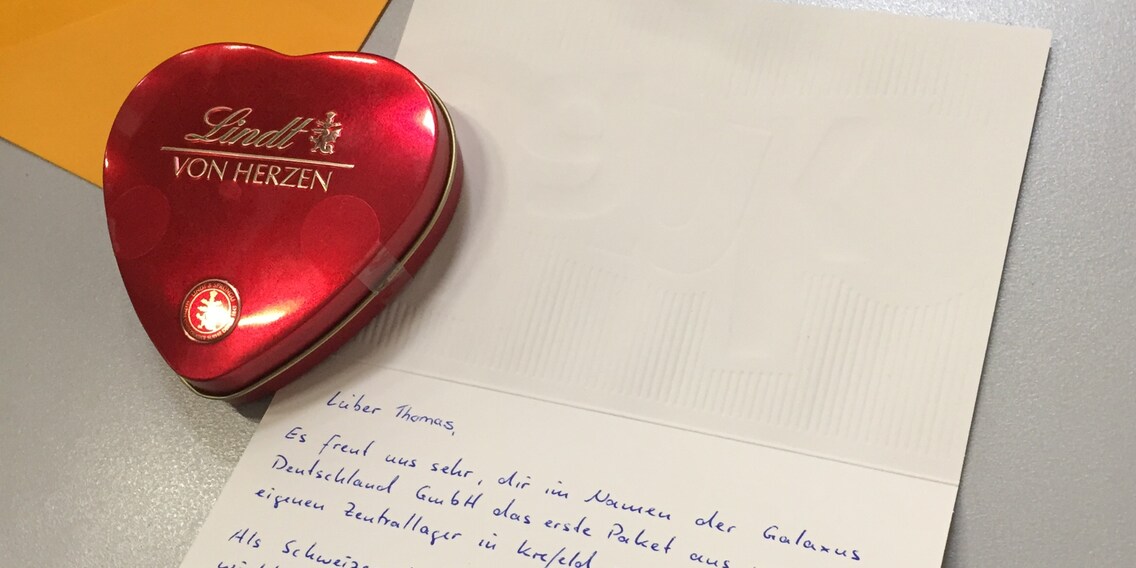 Lindt
VON HERZEN
Lieber Thomas,
Es freut uns sehr, dir im Namen der Galaxus
Deutschland GmbH das erste Paket aus
eigenen Zentrallager in Krefeld
Als